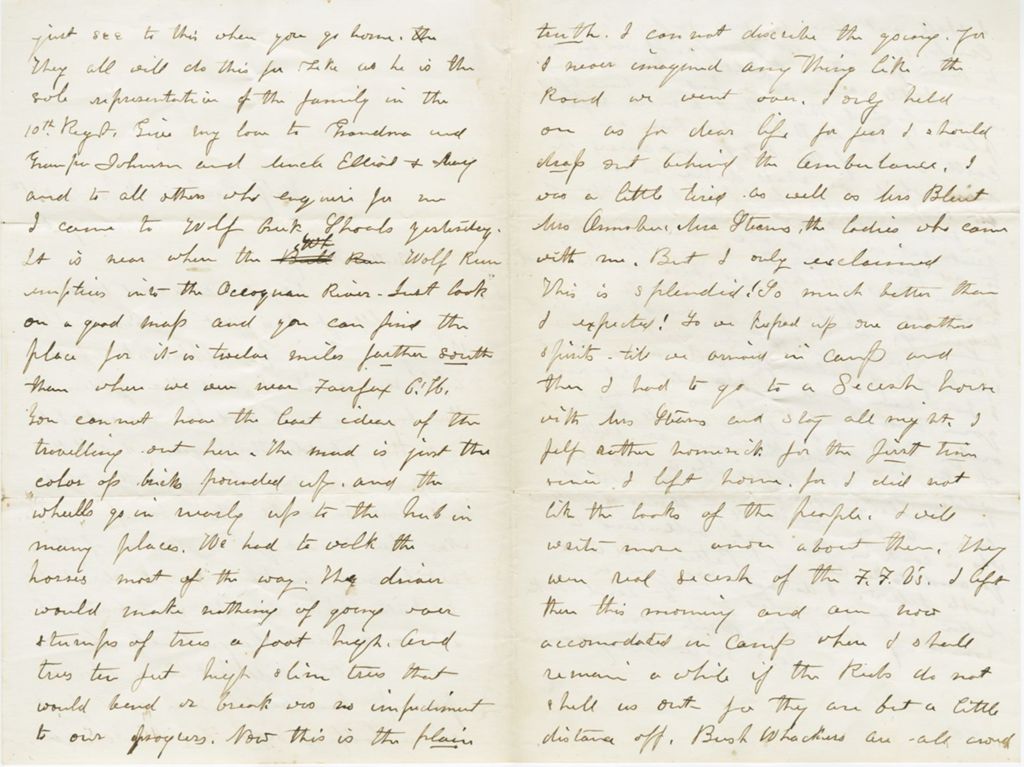 just see to this when you go home. The
They all will do this for Ike as he is the
sole representative of the family in the
10th Regt. Give my love to Grandma and
Grampa Johnson and uncle Elliot & Mary
and to all others who enquire for me
I came to Wolf Run Shoals yesterday.
It is near where the Bull Run Wolf Run
empties into the Occoquan River. Just look
on a good map and you can find the
place for it is twelve miles farther south
than when we were near Fairfax C.H.
You cannot have the least idea of the
travelling out here. The mud is just the
color of brick pounded up. and the
wheells go in nearly up to the hub in
many places. We had to walk the
horses most of the way. The driver
would make nothing of going over
stumps of trees a foot high. and
trees ten feet high slim trees that
would bend or break was no impediment
to our progress. Now this is the plain
truth. I can not discribe the going. for
I never imagined any thing like the
Road we went over. I only held
on as for dear life for fear I should
drop out behind the ambulance. I
was a little tired as well as Mrs Blunt
Mrs Stearns, the ladies who came
with me. But I only exclaimed
This is splendid! So much better than
I expected! So we keped up one anothers
spirits till we arrived in camp and
then I had to go to a Secesh house
with Mrs Stearns and stay all night. I
felt rather homesick for the first time
since I left home. for I did not
like the looks of the people. I will
write more anon about them. They
were real secesh of the F.F.V's. I left
there this morning and am now
accomodated in camp where I shall
remain a while if the Rebs do not
shell us out for they are but a little
distance off. Bush Whackers are all around